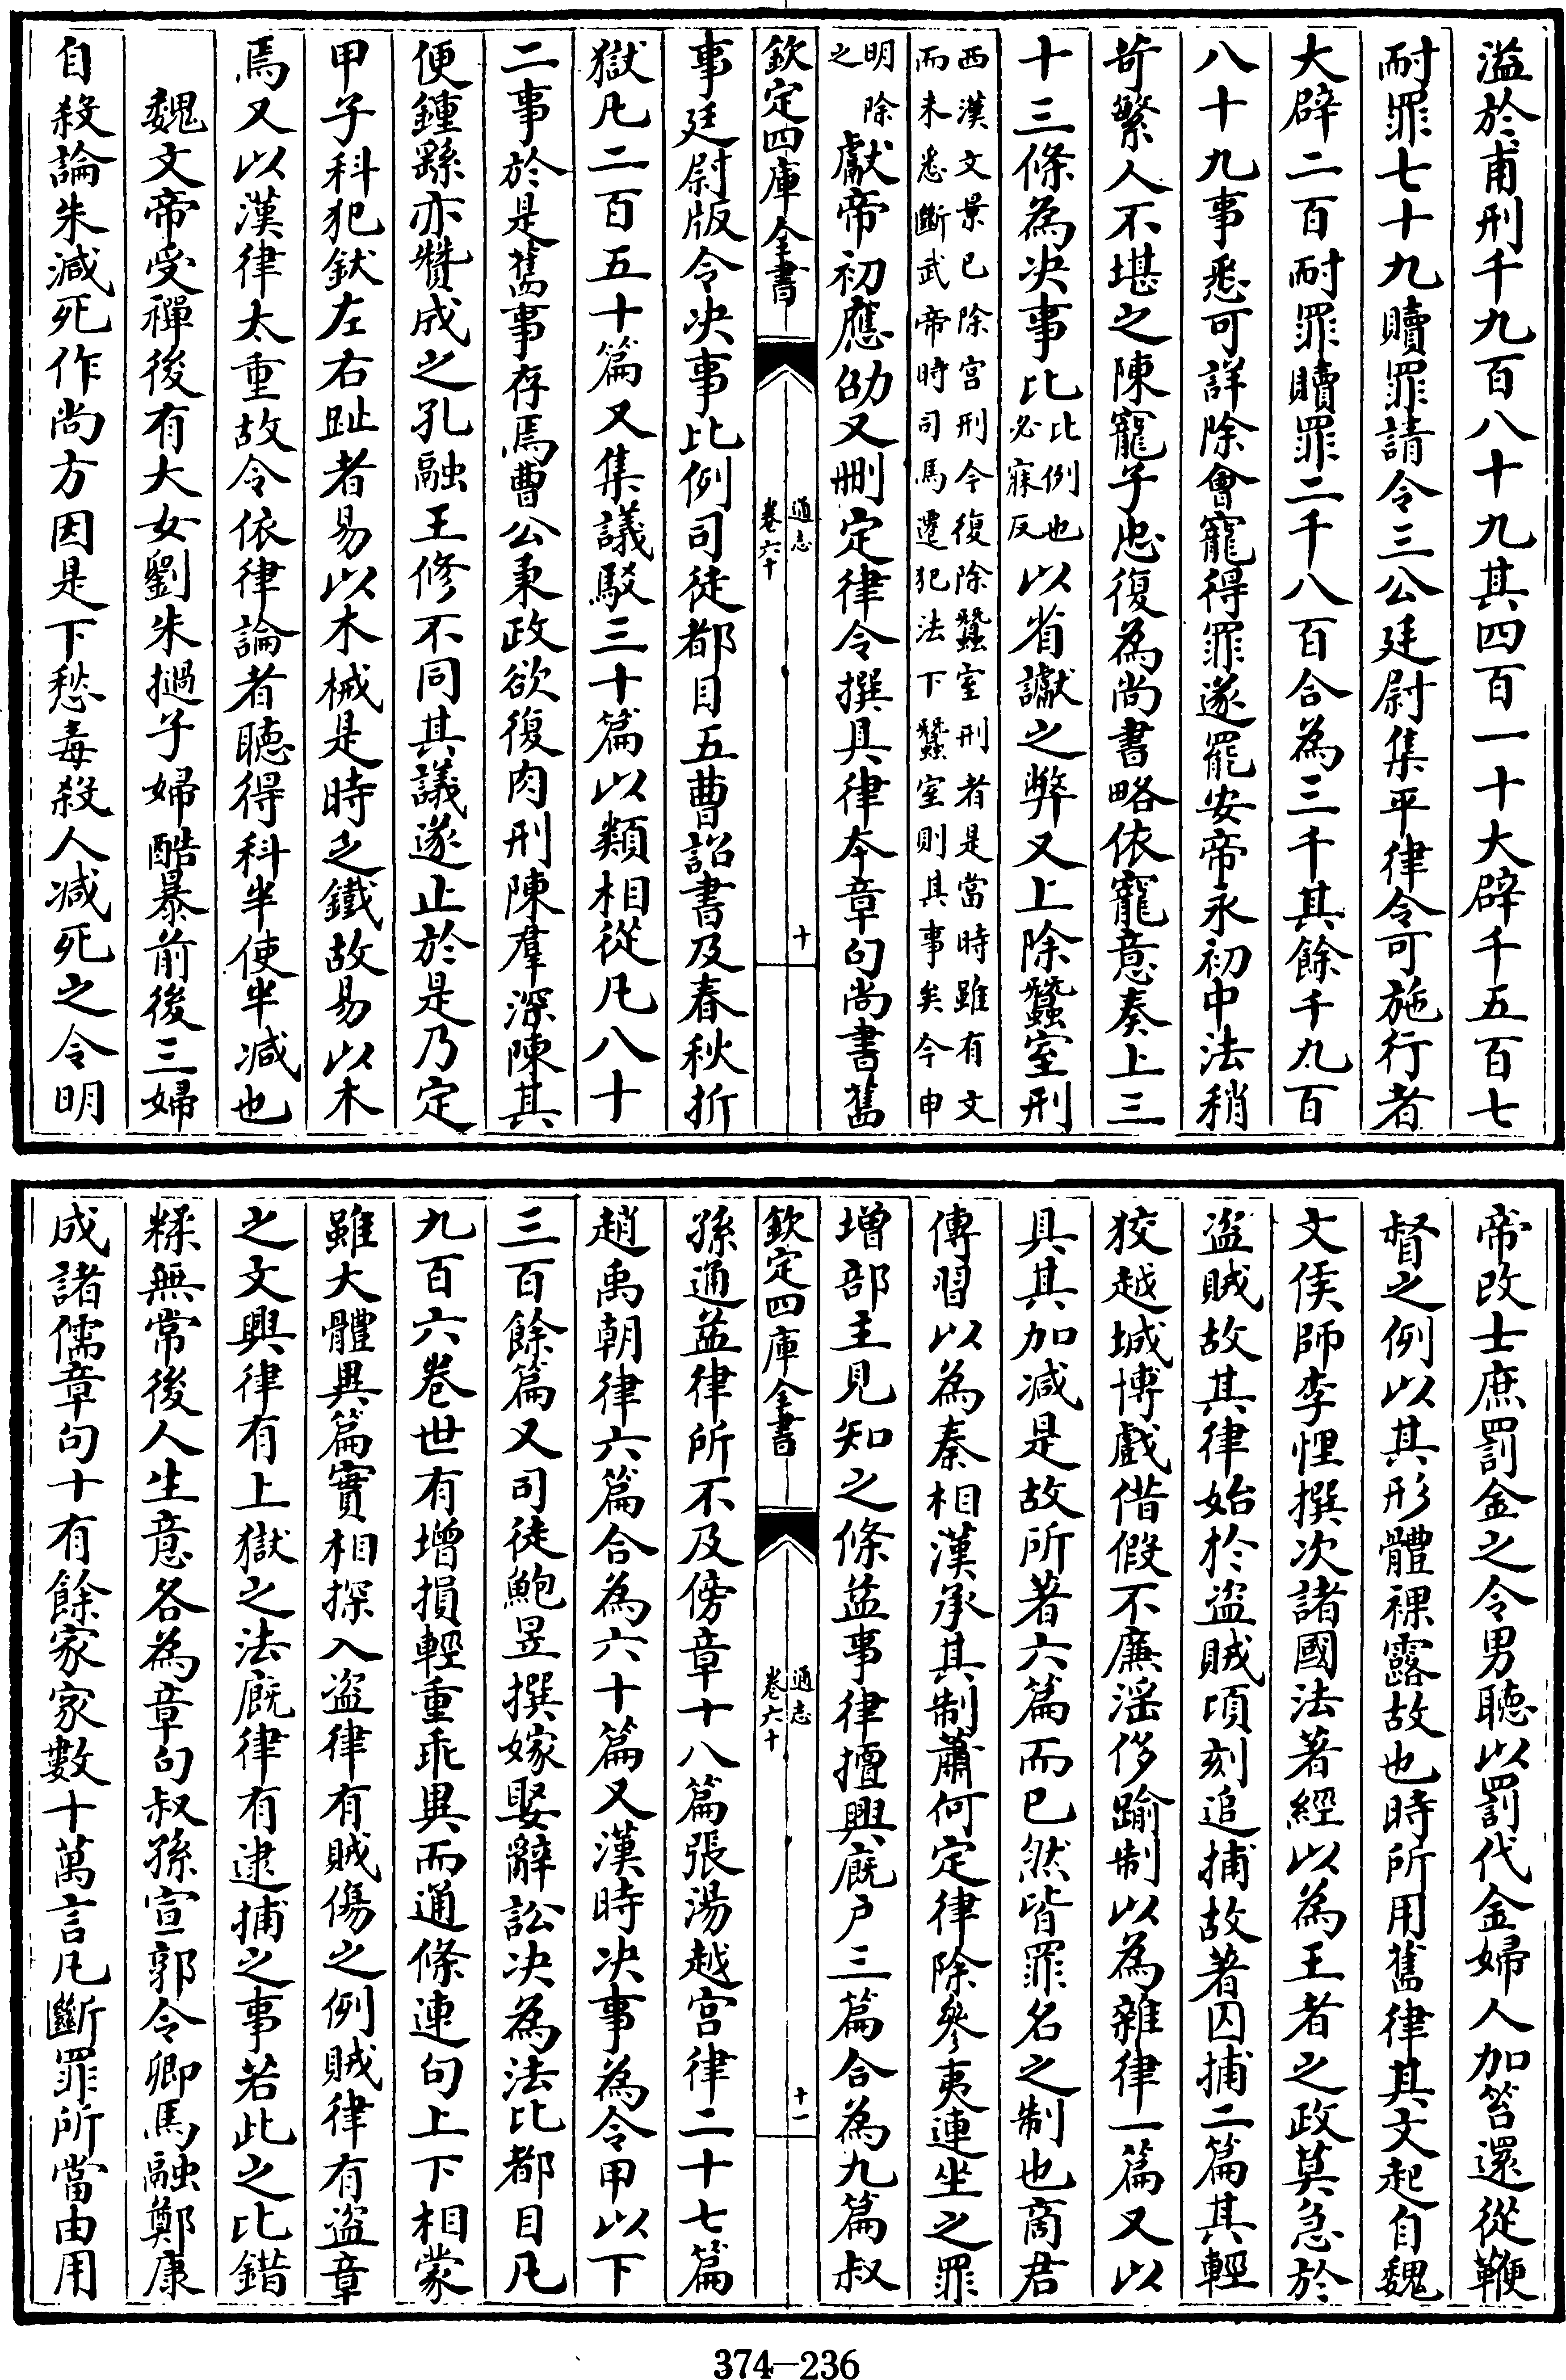 溢於甫刑千九百八十九其四百一十大辟千五百七
耐罪七十九贖罪請令三公廷尉集平律令可施行者
大辟二百耐罪贖罪二千八百合為三千其餘千九百
八十九事悉可詳除會寵得罪遂罷安帝永初中法稍
苛繁人不堪之陳寵子忠復為尚書略依寵意奏上三
十三條為决事比比例也必寐反以省讞之弊又上除蠶室刑
西漢文景已除宫刑今復除蠶室刑者是當時雖有文
而未悉斷武帝時司馬遷犯法下蠶室則其事矣今申
明除之獻帝初應劭又刪定律令撰具律本章句尚書舊
欽定四庫全書 通志 卷六十 十
事廷尉版令决事比例司徒都目五曹詔書及春秋折
獄凡二百五十篇又集議駁三十篇以類相從凡八十
二事於是舊事存焉曹公秉政欲復肉刑陳羣深陳其
便鍾繇亦贊成之孔融王修不同其議遂止於是乃定
甲子科犯釱左右趾者易以木械是時乏鐵故易以木
焉又以漢律太重故令依律論者聽得科半使半减也
魏文帝受禪後有大女劉朱撾子婦酷暴前後三婦
自殺論朱减死作尚方因是下愁毒殺人减死之令明
帝改士庶罰金之令男聽以罰代金婦人加笞還從鞭
督之例以其形體裸露故也時所用舊律其文起自魏
文侯師李悝撰次諸國法著經以為王者之政莫急於
盗賊故其律始於盗賊頃刻追捕故著囚捕二篇其輕
狡越城博戲借假不廉滛侈踰制以為雜律一篇又以
具其加减是故所著六篇而已然皆罪名之制也商君
傳習以為秦相漢承其制蕭何定律除參夷連坐之罪
增部主見知之條益事律擅興廐户三篇合為九篇叔
欽定四庫全書 通志 卷六十 十一
孫通益律所不及傍章十八篇張湯越宫律二十七篇
趙禹朝律六篇合為六十篇又漢時决事為令甲以下
三百餘篇又司徒鮑昱撰嫁娶辭訟决為法比都目凡
九百六卷世有增損輕重乖異而通條連句上下相蒙
雖大體異篇實相探入盗律有賊傷之例賊律有盗章
之文興律有上獄之法廐律有逮捕之事若此之比錯
糅無常後人生意各為章句叔孫宣郭令卿馬融鄭康
成諸儒章句十有餘家家數十萬言凡斷罪所當由用
374-236